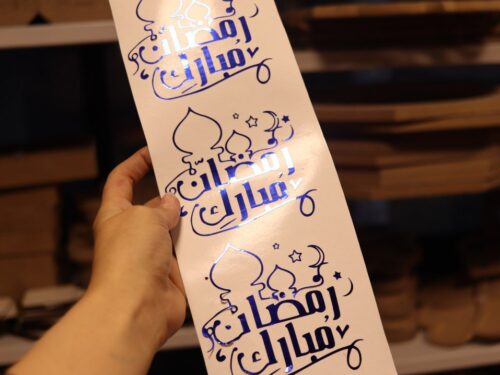 رمضان
مبارك
رمضان
مبارك
رمضان
مبارك